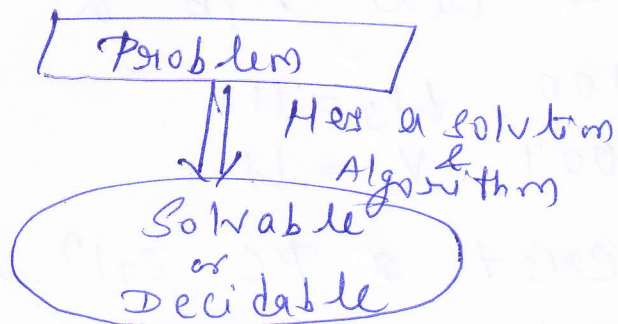 Problem
Has a solution
&
Algorithm
Solvable
or
Decidable